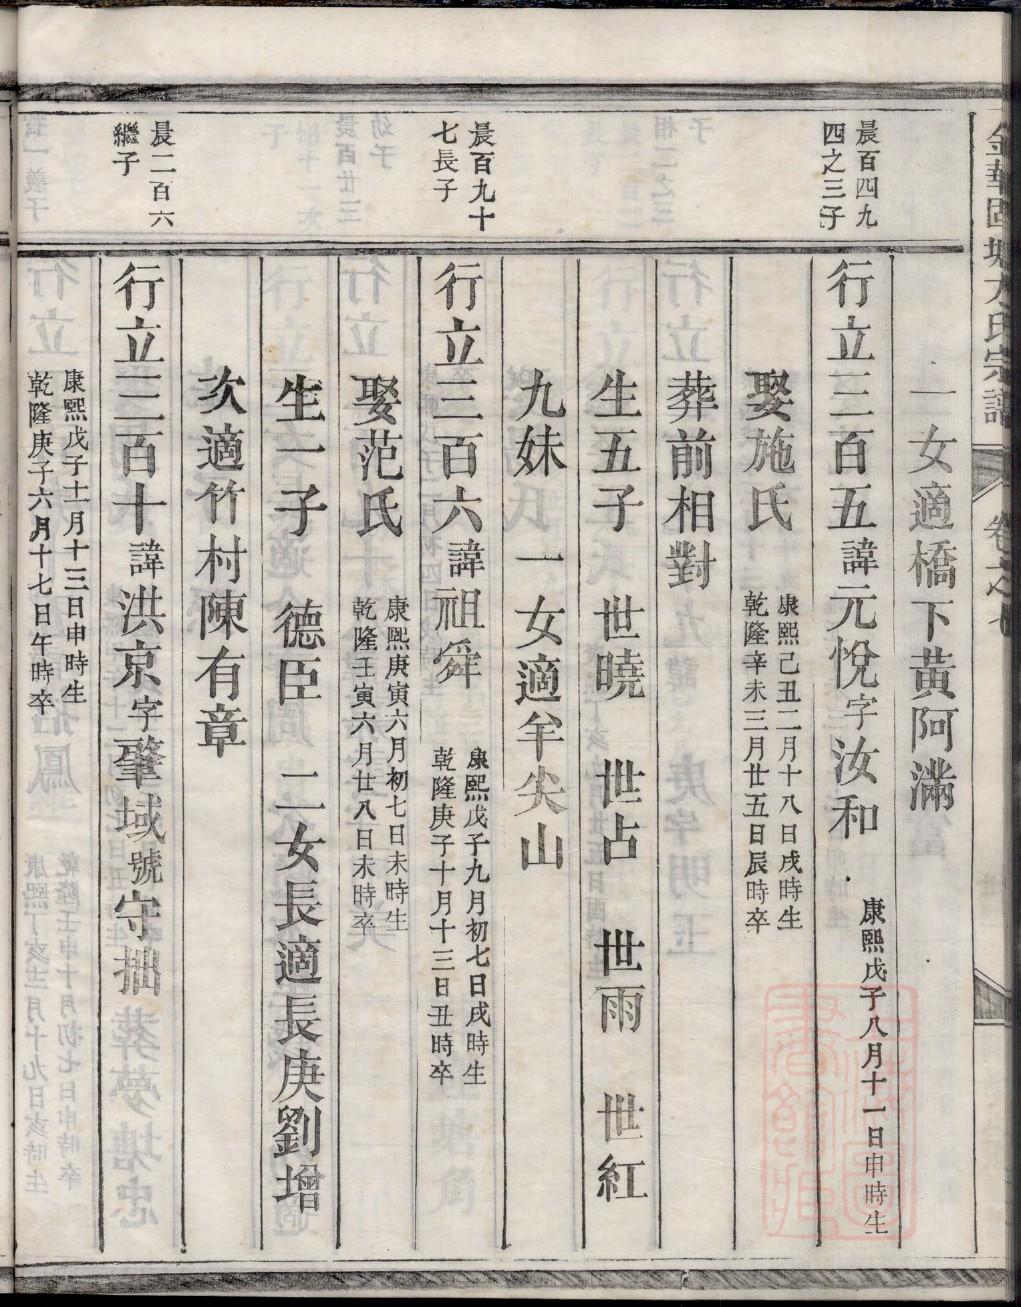 金華固塘方氏宗譜 卷之七
一女適橋下黃阿滿
晨百四九
四之三子
行立三百五諱元悅字汝和
康熙戊子八月十一日申時生
娶施氏
康熙己丑二月十八日戌時生
乾隆辛未三月廿五日辰時卒
葬前相對
生五子 世曉 世占 世雨 世紅
九妹 一女適牟尖山
晨百九十
七長子
行立三百六諱祖舜
康熙戊子九月初七日戌時生
乾隆庚子十月十三日丑時卒
娶范氏
康熙庚寅六月初七日未時生
乾隆壬寅六月廿八日未時卒
生一子 德臣 二女長適長庚劉增
次適竹村陳有章
晨二百六
繼子
行立三百十諱洪京字肇域號守拙
康熙戊子十一月十三日申時生
乾隆庚子六月十七日午時卒